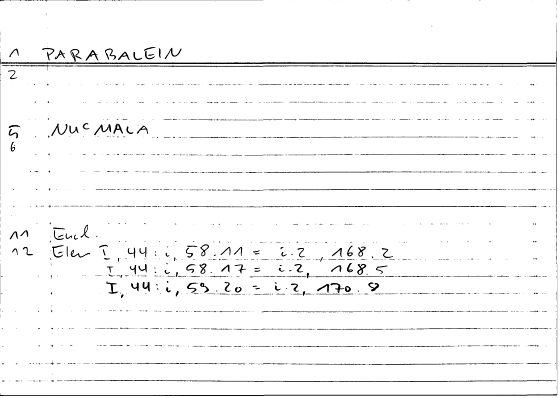 1 PARABALEIN
2
5 NUCMALA
6
11 Eucl.
12 Elem I, 44: i, 58.11 = i.2, 168.2
I, 44: i, 58.17 = i.2, 168.5
I, 44: i, 59.20 = i.2, 170.8